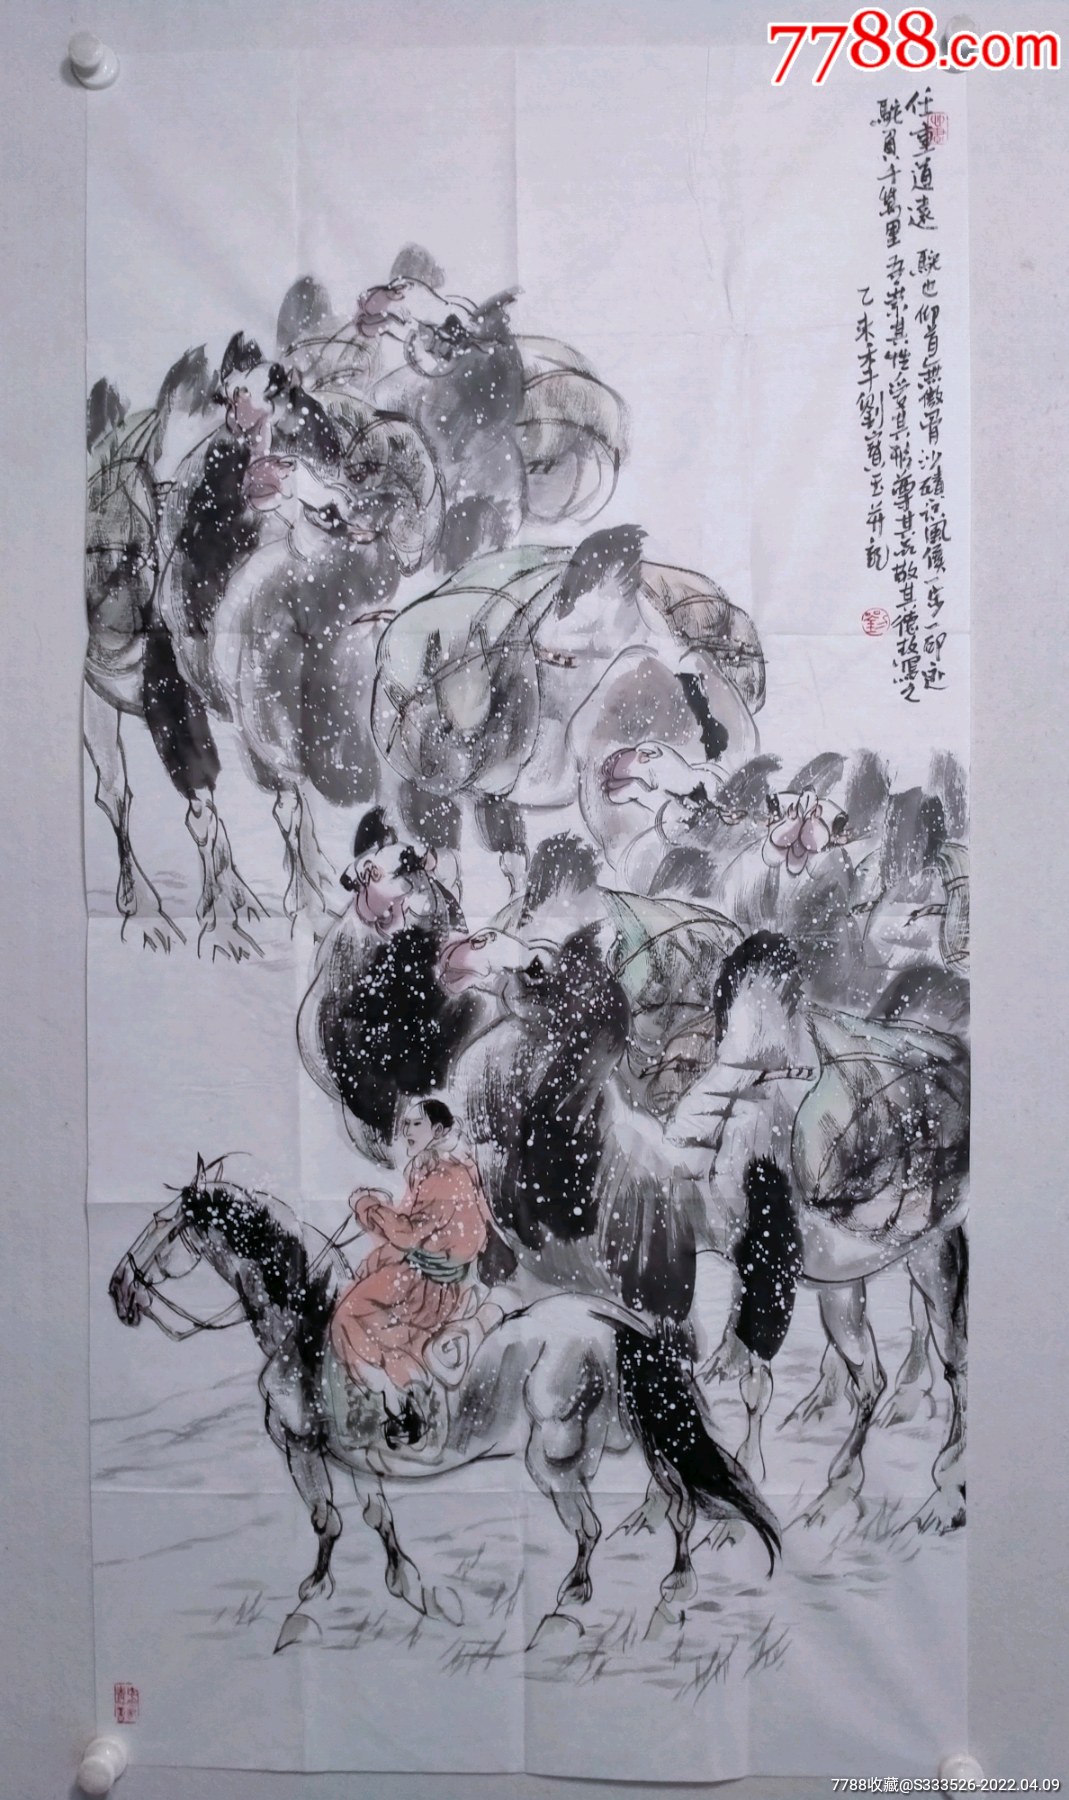 7788.com
任重道遠 駝也仰首無傲骨沙磧識風候一步一印迹
駝負千萬里吾崇其性愛其形尊其品敬其德故寫之
乙未年劉寶玉并記
7788收藏@S333526-2022.04.09